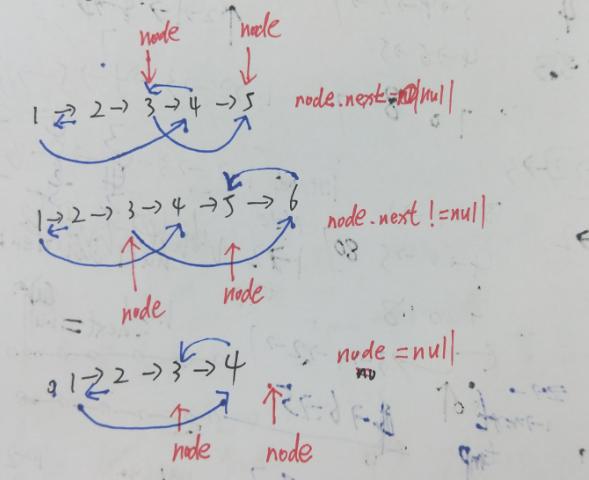 node node
1 → 2 → 3 → 4 → 5 node.next = null
1 → 2 → 3 → 4 → 5 → 6 node.next != null
node node
=
1 → 2 → 3 → 4 node = null
node node